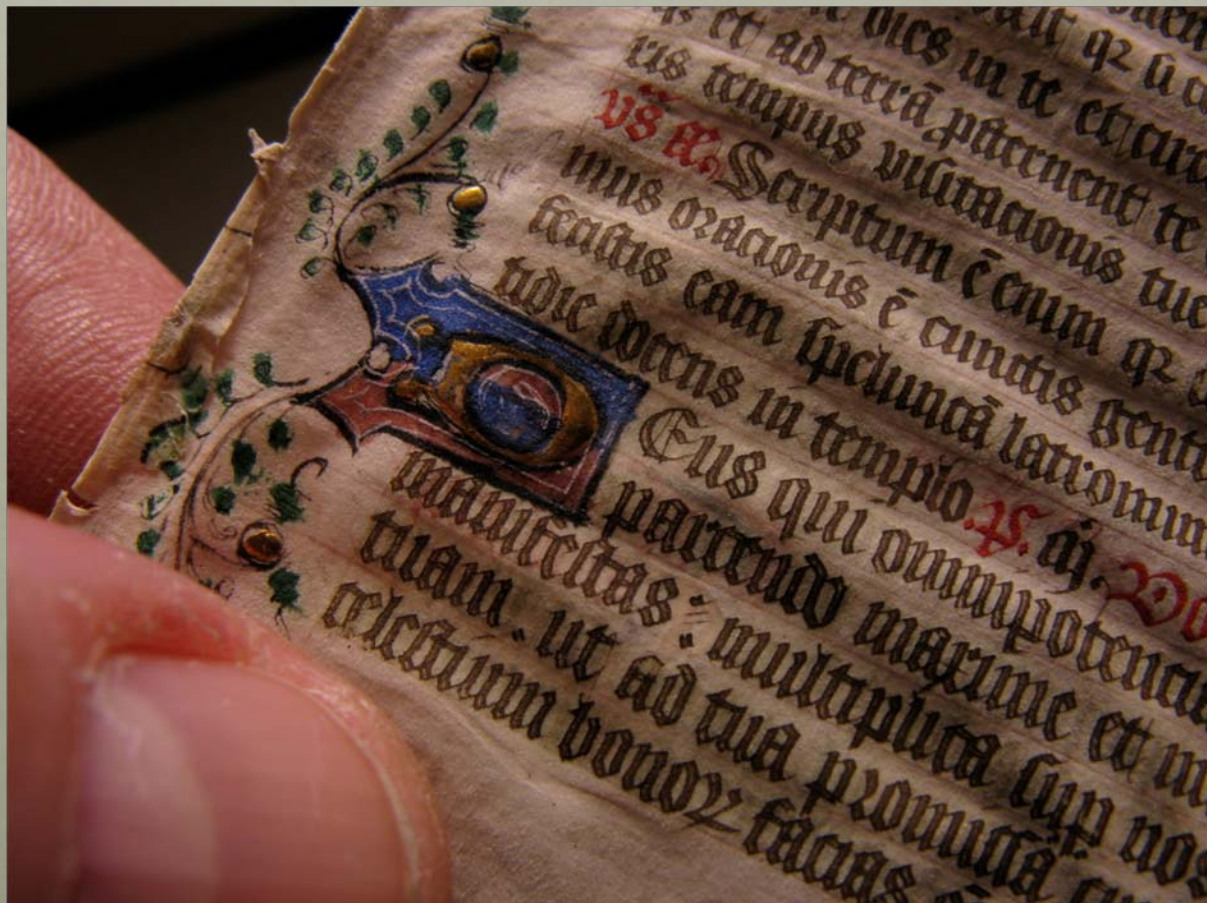 qꝫ si
dies in te et circ
et ad terrā te
ris tempus visitacionis tue
Scriptum ē enim qꝫ
mus oracionis ē cunctis genti
fecistis eam speluncā latronum
tidie docens in templo.
DEus qui omnipotenci
parcendo maxime et mi
manifestas: multiplica sup nos
tuam. ut ad tua promissā
celestium bonoꝝ facias